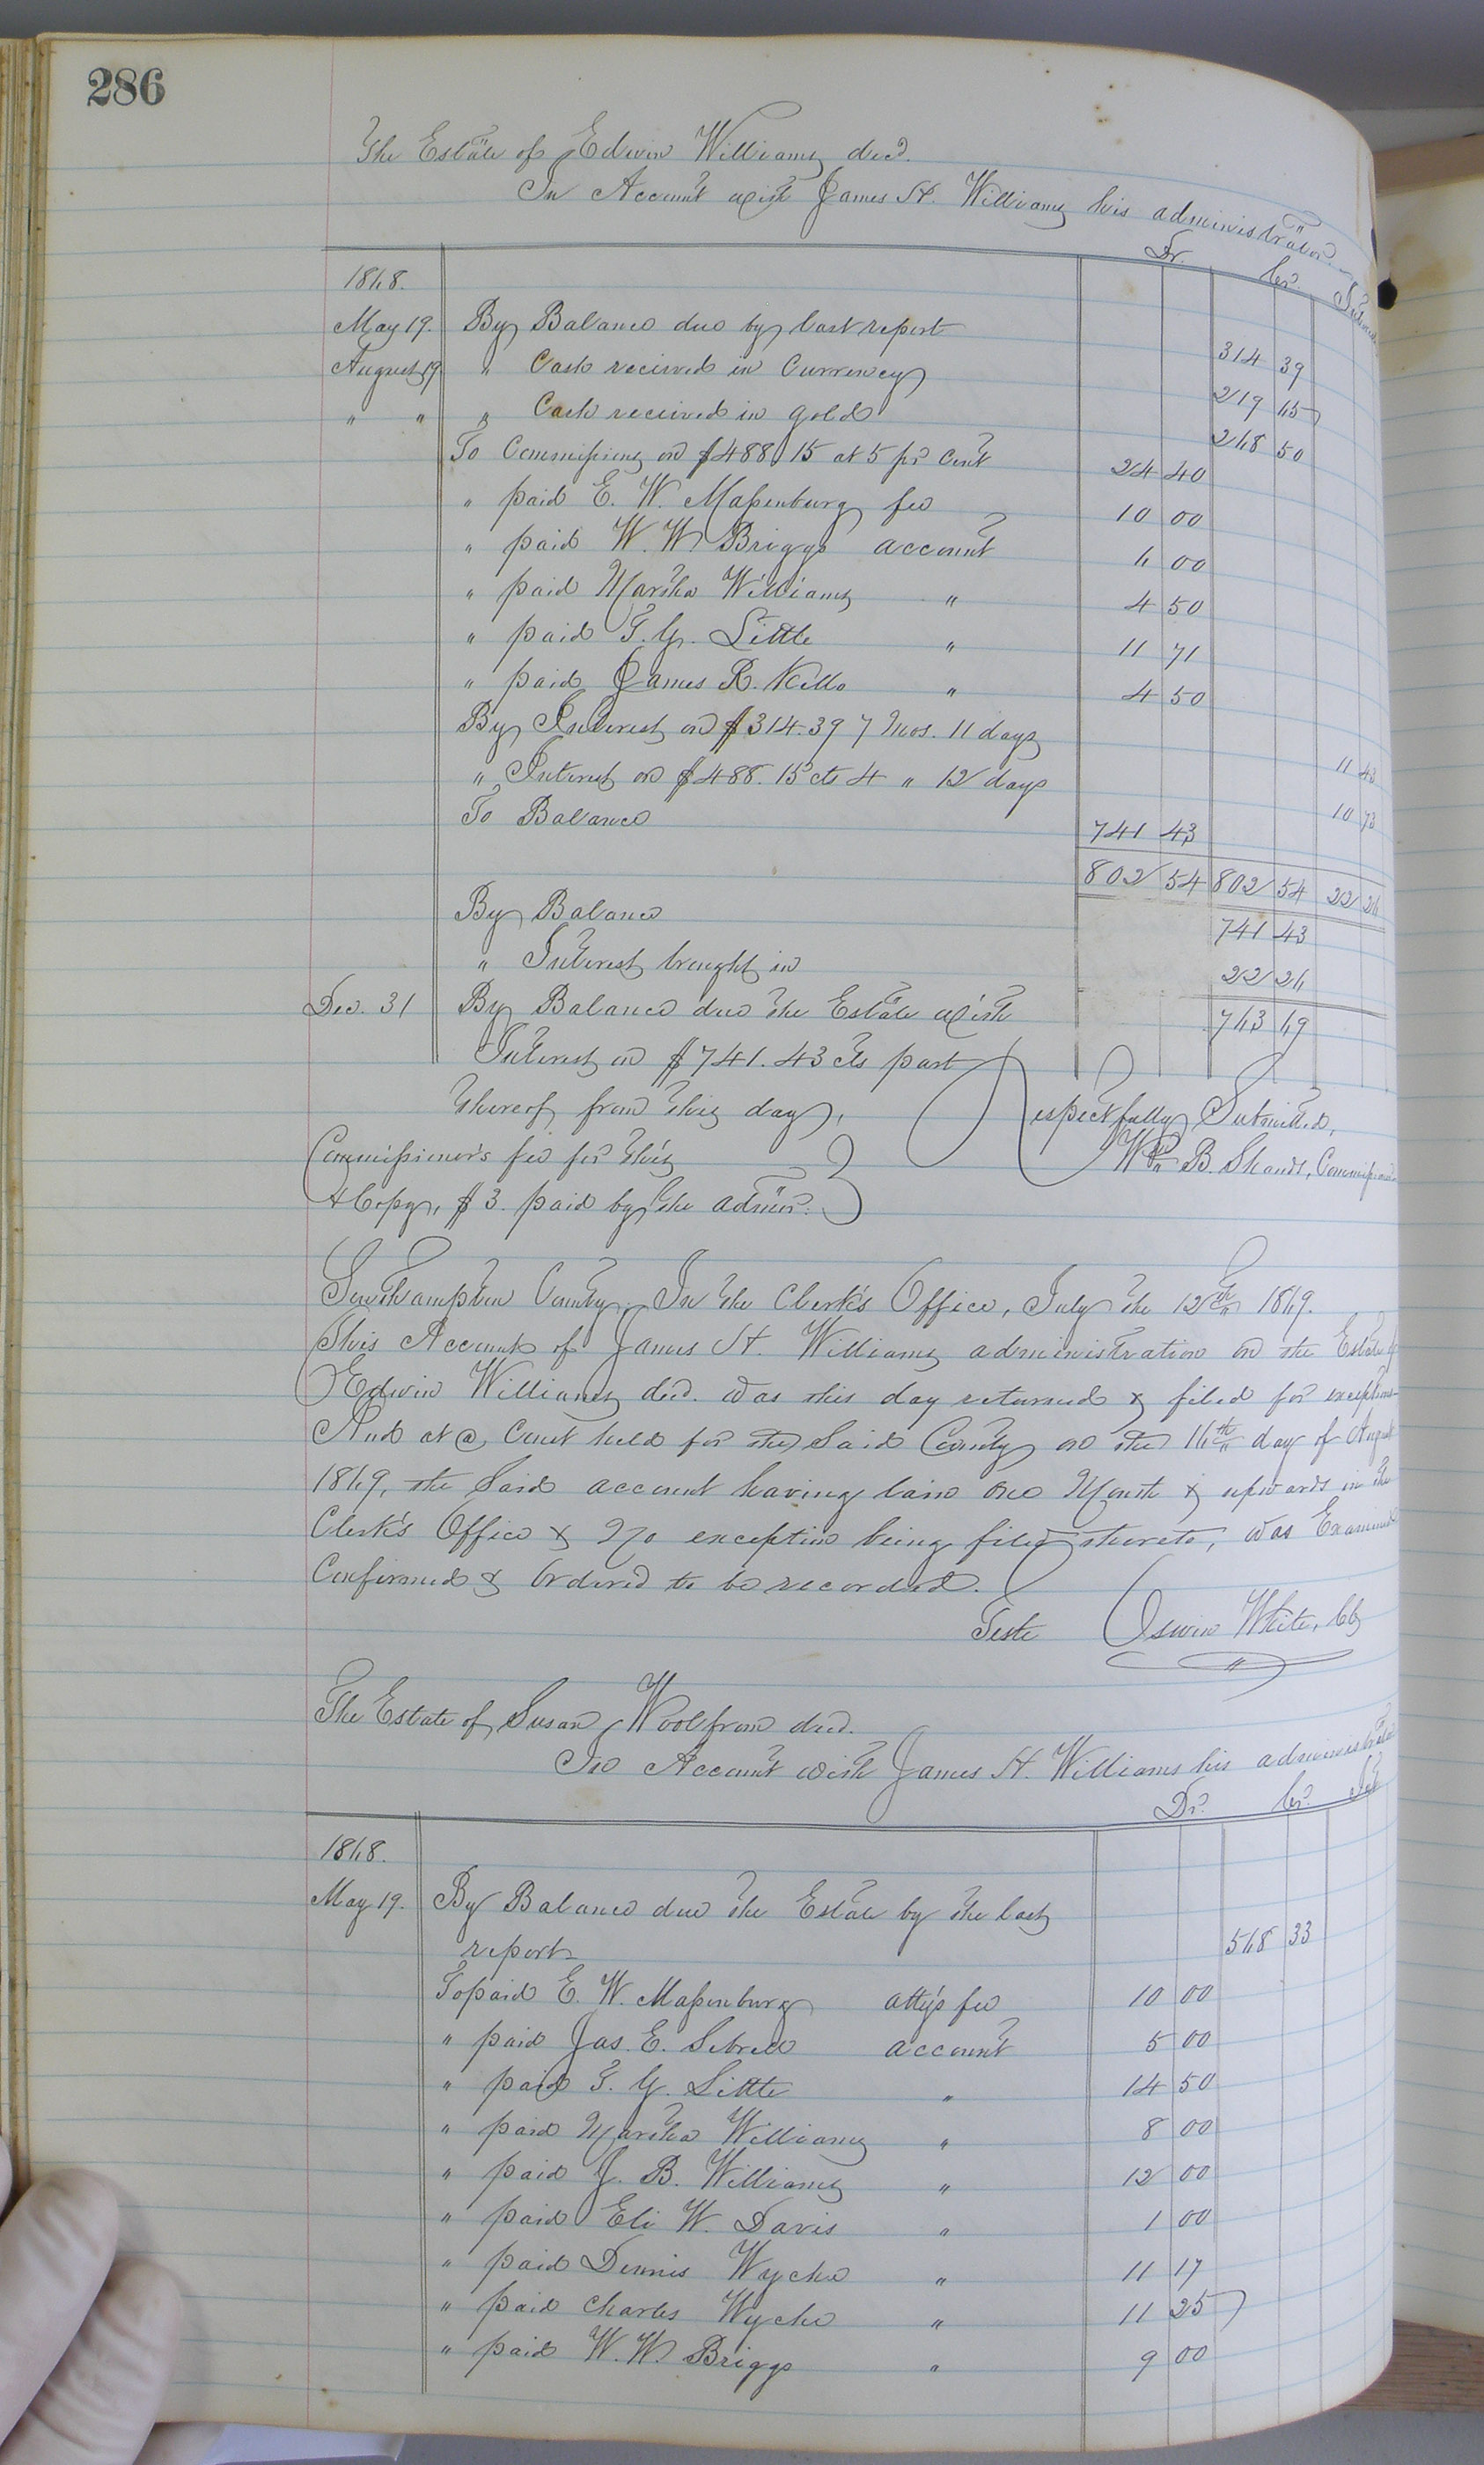 286
The Estate of Edwin Williams decd.
In Account with James H. Williams his administrator
Dr. Cr. Interest
1868.
May 19. By Balance due by last report 314 39
August 19 " Cash received in Currency 219 65
" " " Cash received in gold 268 50
To Commissions on $488.15 at 5 pr Cent 24 40
" paid E. W. Massenburg fee 10 00
" paid W. W. Briggs account 6 00
" paid Martha Williams " 4 50
" paid T. G. Little " 11 71
" paid James R. Kello " 4 50
By Interest on $314.39 7 Mos. 11 days 11 43
" Interest on $488.15 cts 4 " 12 days 10 73
To Balance 741 43
802 54 802 54 22 26
By Balance 741 43
" Interest brought in 22 26
Dec. 31 By Balance due the Estate with 763 69
Interest on $741.43 cts part
thereof from this day, Respectfully Submitted,
Commissioner's fee for this Wm B. Shands, Commissioner
& Copy, $3. paid by the admor.
Southampton County. In the Clerk's Office, July the 12th 1869.
This Account of James H. Williams administration on the Estate of
Edwin Williams decd. was this day returned & filed for exceptions
And at a Court held for the Said County on the 16th day of August
1869, the Said account having lain one Month & upwards in the
Clerk's Office & No exception being filed thereto, was Examined
Confirmed & Ordered to be recorded.
Teste Oswin White, Clk
The Estate of Susan Woolfrom decd.
In Account with James H. Williams his administrator
Dr. Cr. Int
1868.
May 19. By Balance due the Estate by the last
report 568 33
To paid E. W. Massenburg atty's fee 10 00
" paid Jas. E. Sebrell account 5 00
" paid T. G. Little " 14 50
" paid Martha Williams " 8 00
" paid J. B. Williams " 12 00
" paid Eli W. Davis " 1 00
" paid Dennis Wyche " 11 17
" paid Charles Wyche " 11 25
" paid W. W. Briggs " 9 00